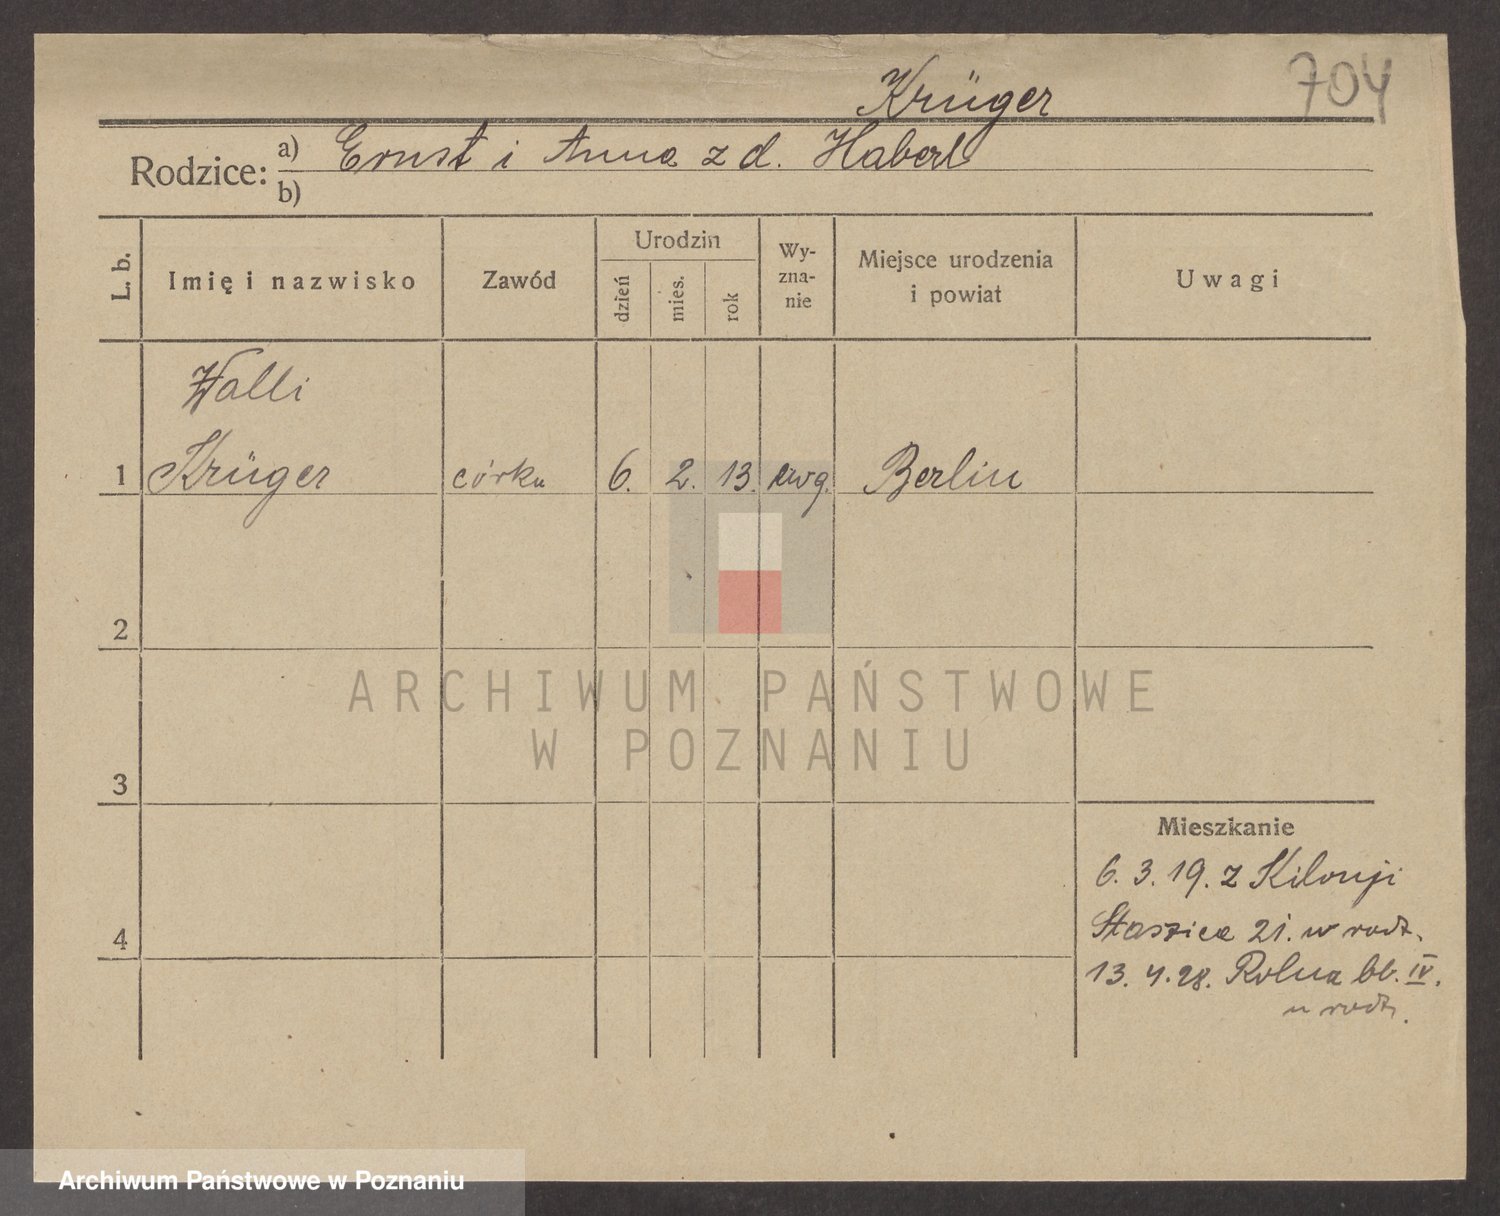 Krüger
704
Rodzice: a) Ernst i Anna z d. Haberl
b)
L. b.
Imię i nazwisko
Zawód
Urodzin
dzień
mies.
rok
Wy-
zna-
nie
Miejsce urodzenia
i powiat
Uwagi
Walli
1 Krüger córka 6. 2. 13. ewg. Berlin
2
3
4
Mieszkanie
6. 3. 19. z Kilonji
Staszica 21. w rodz.
13. 4. 28. Rolna bb. IV.
u rodz.
ARCHIWUM PAŃSTWOWE
W POZNANIU
Archiwum Państwowe w Poznaniu